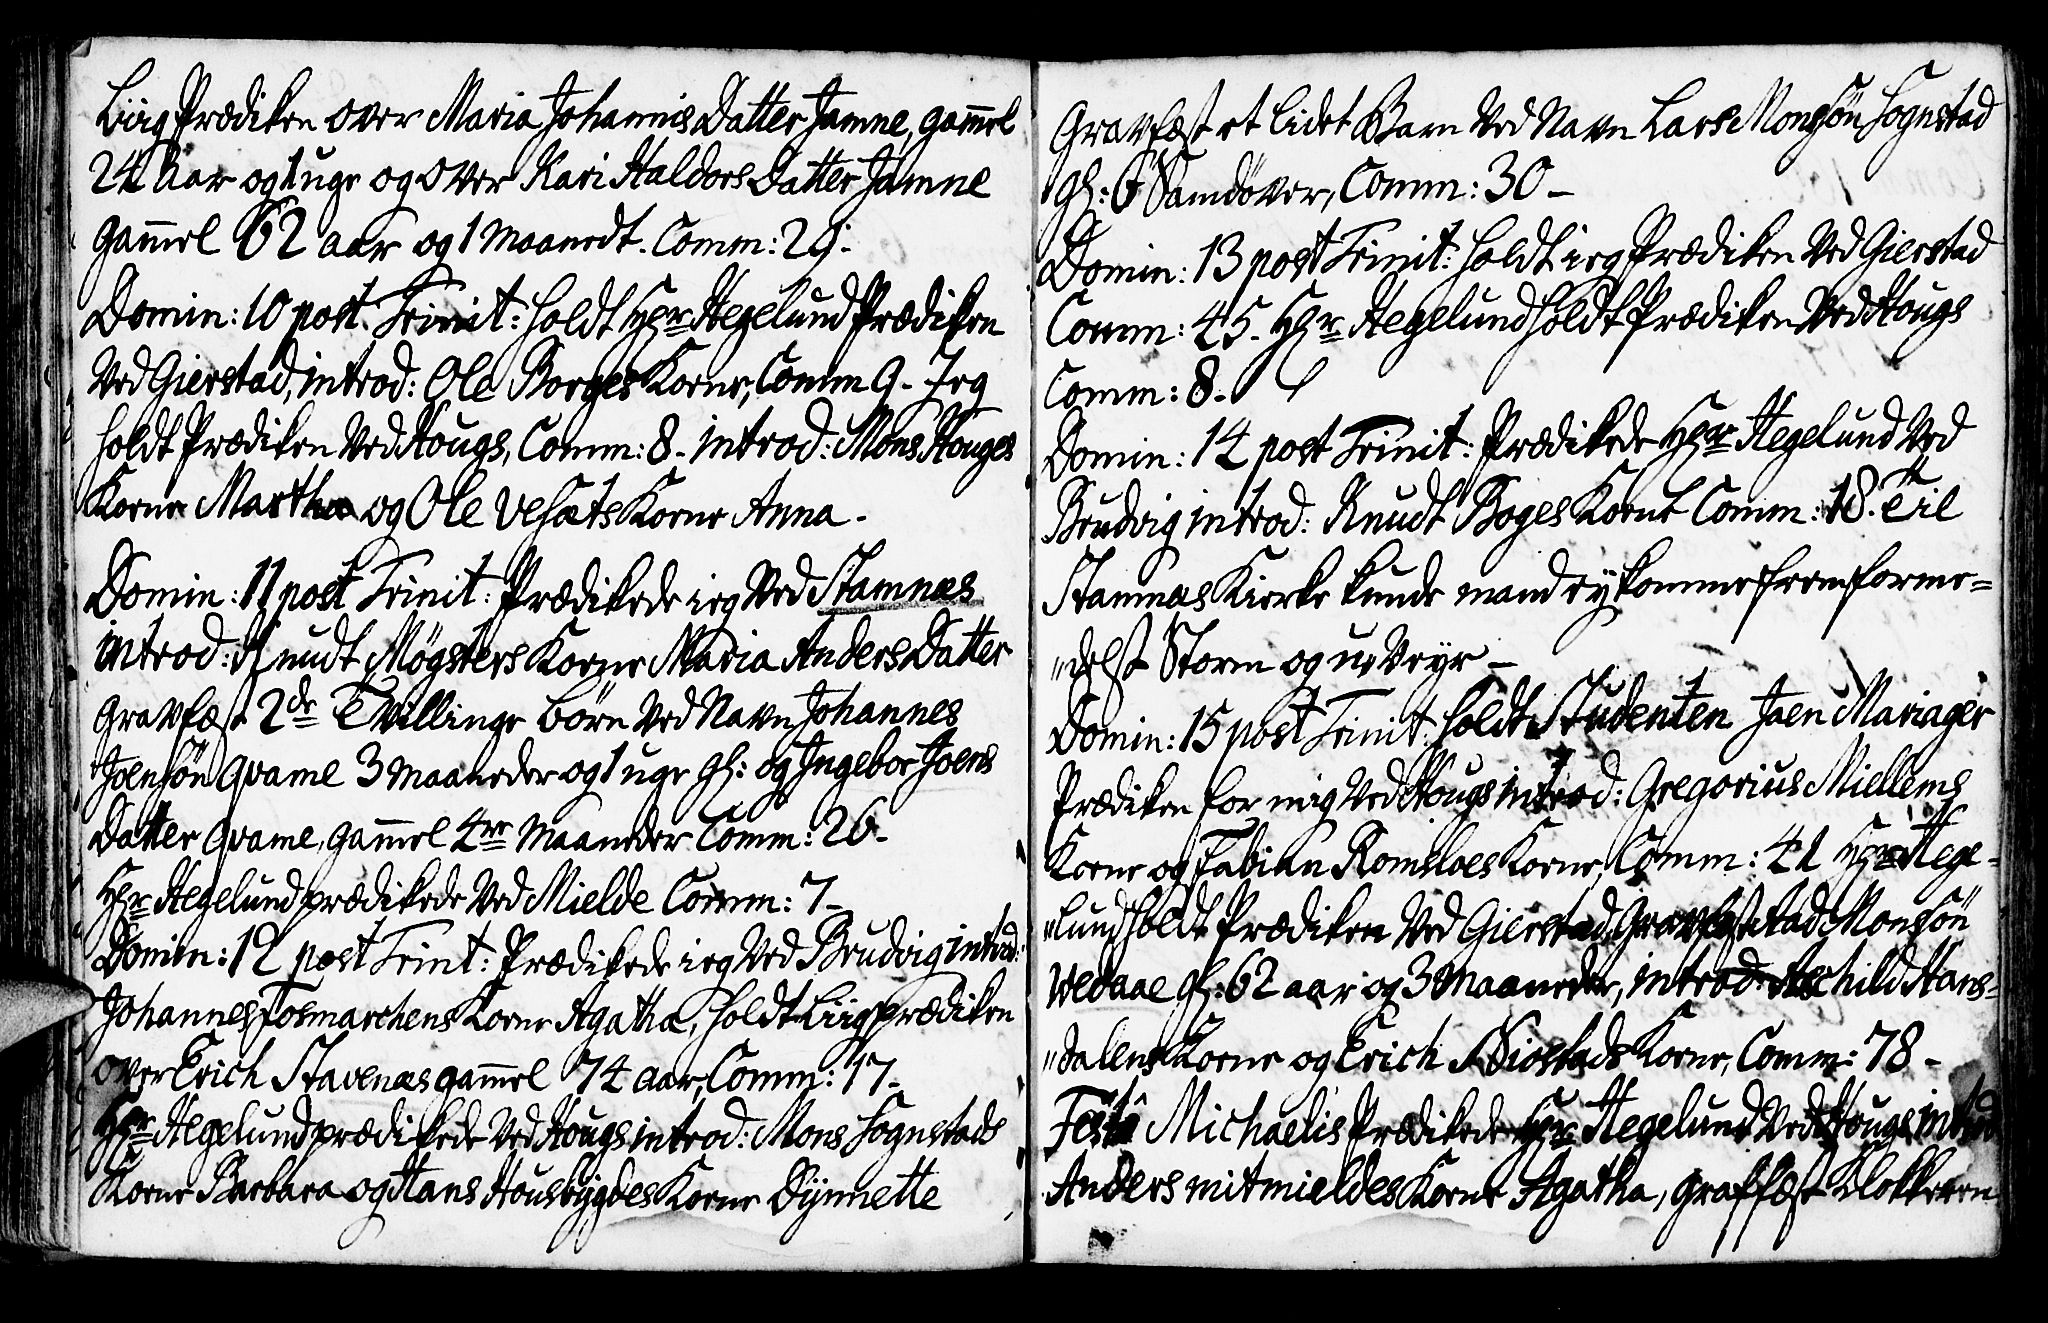 Liigprædiken over Maria JohannisDatter Jamne, gam̅el
24 Aar og 1 uge og over Kari Haldors Datter Jamne
gam̅el 62 aar og 1 Maanedt. Comm: 29.
Domin: 10 post. Trinit: holdt Hr Hegelund Prædiken
Ved Gierstad, introd: Ole Borges Kone, Comm 9. Jeg
holdt Prædiken Ved Hougs, Comm: 8. introd: Mons Houges
Kone Martha og Ole Vesæts Kone Anna.
Domin: 11 post Trinit: Prædikede ieg Ved Stamnæs
introd: Knudt Møgsters Kone Maria AndersDatter
gravfæst 2de Tvillinge Børn Ved Navn Johannes
Joensön qvame 3 maaneder og 1 uge gl: og Ingebor Joens
Datter qvame, gam̅el 4re Maaneder Comm: 26.
Hr Hegelund prædikede Ved Mielde Comm: 7.
Domin: 12 post Trint: Prædikede ieg Ved Brudvig introd:
Johannes Fosmarchens Kone Agatha, holdt Liigprædiken
over Erich Stavenæs gam̅el 74 aar, Comm: 17.
Hr Hegelund prædikede Ved Hougs introd: Mons Sognstads
Kone Barbara og Hans Housbygdes Kone Dynnette
Gravfæst et lidet Barn Ved Navn Lars Monssön Sognstad
gl: 6 Samdøver, Comm: 30.
Domin: 13 post Trinit: holdt ieg Prædiken Ved Gierstad
Comm: 45. Hr Hegelund holdt Prædiken Ved Hougs
Comm: 8.
Domin: 14 post Trinit: Prædikede Hr Hegelund Ved
Brudvig introd: Knudt Boges Kone Comm: 18. Til
Stamnæs Kierke kunde mand ey komme frem forme=
"delst Storm og u-Veyr
Domin: 15 post Trinit: holdt Studenten Joen Mariager
Prædiken for mig Ved Hougs introd: Gregorius Miellems
Kone og Fabian Romsloes Kone, Comm: 41 Hr Hege-
"lund holdt Prædiken Ved Gierstad, Gravfæst Stad Monsön
Wedaae gl: 62 aar og 3 Maaneder, introd: Aschild Hans-
"dalens Kone og Erich Kone, Comm: 78
Festo Michaelis Prædikede Hr Hegelund Ved Hougs introd
Anders mitmieldes Kone Agatha, graffæst Klokkeren